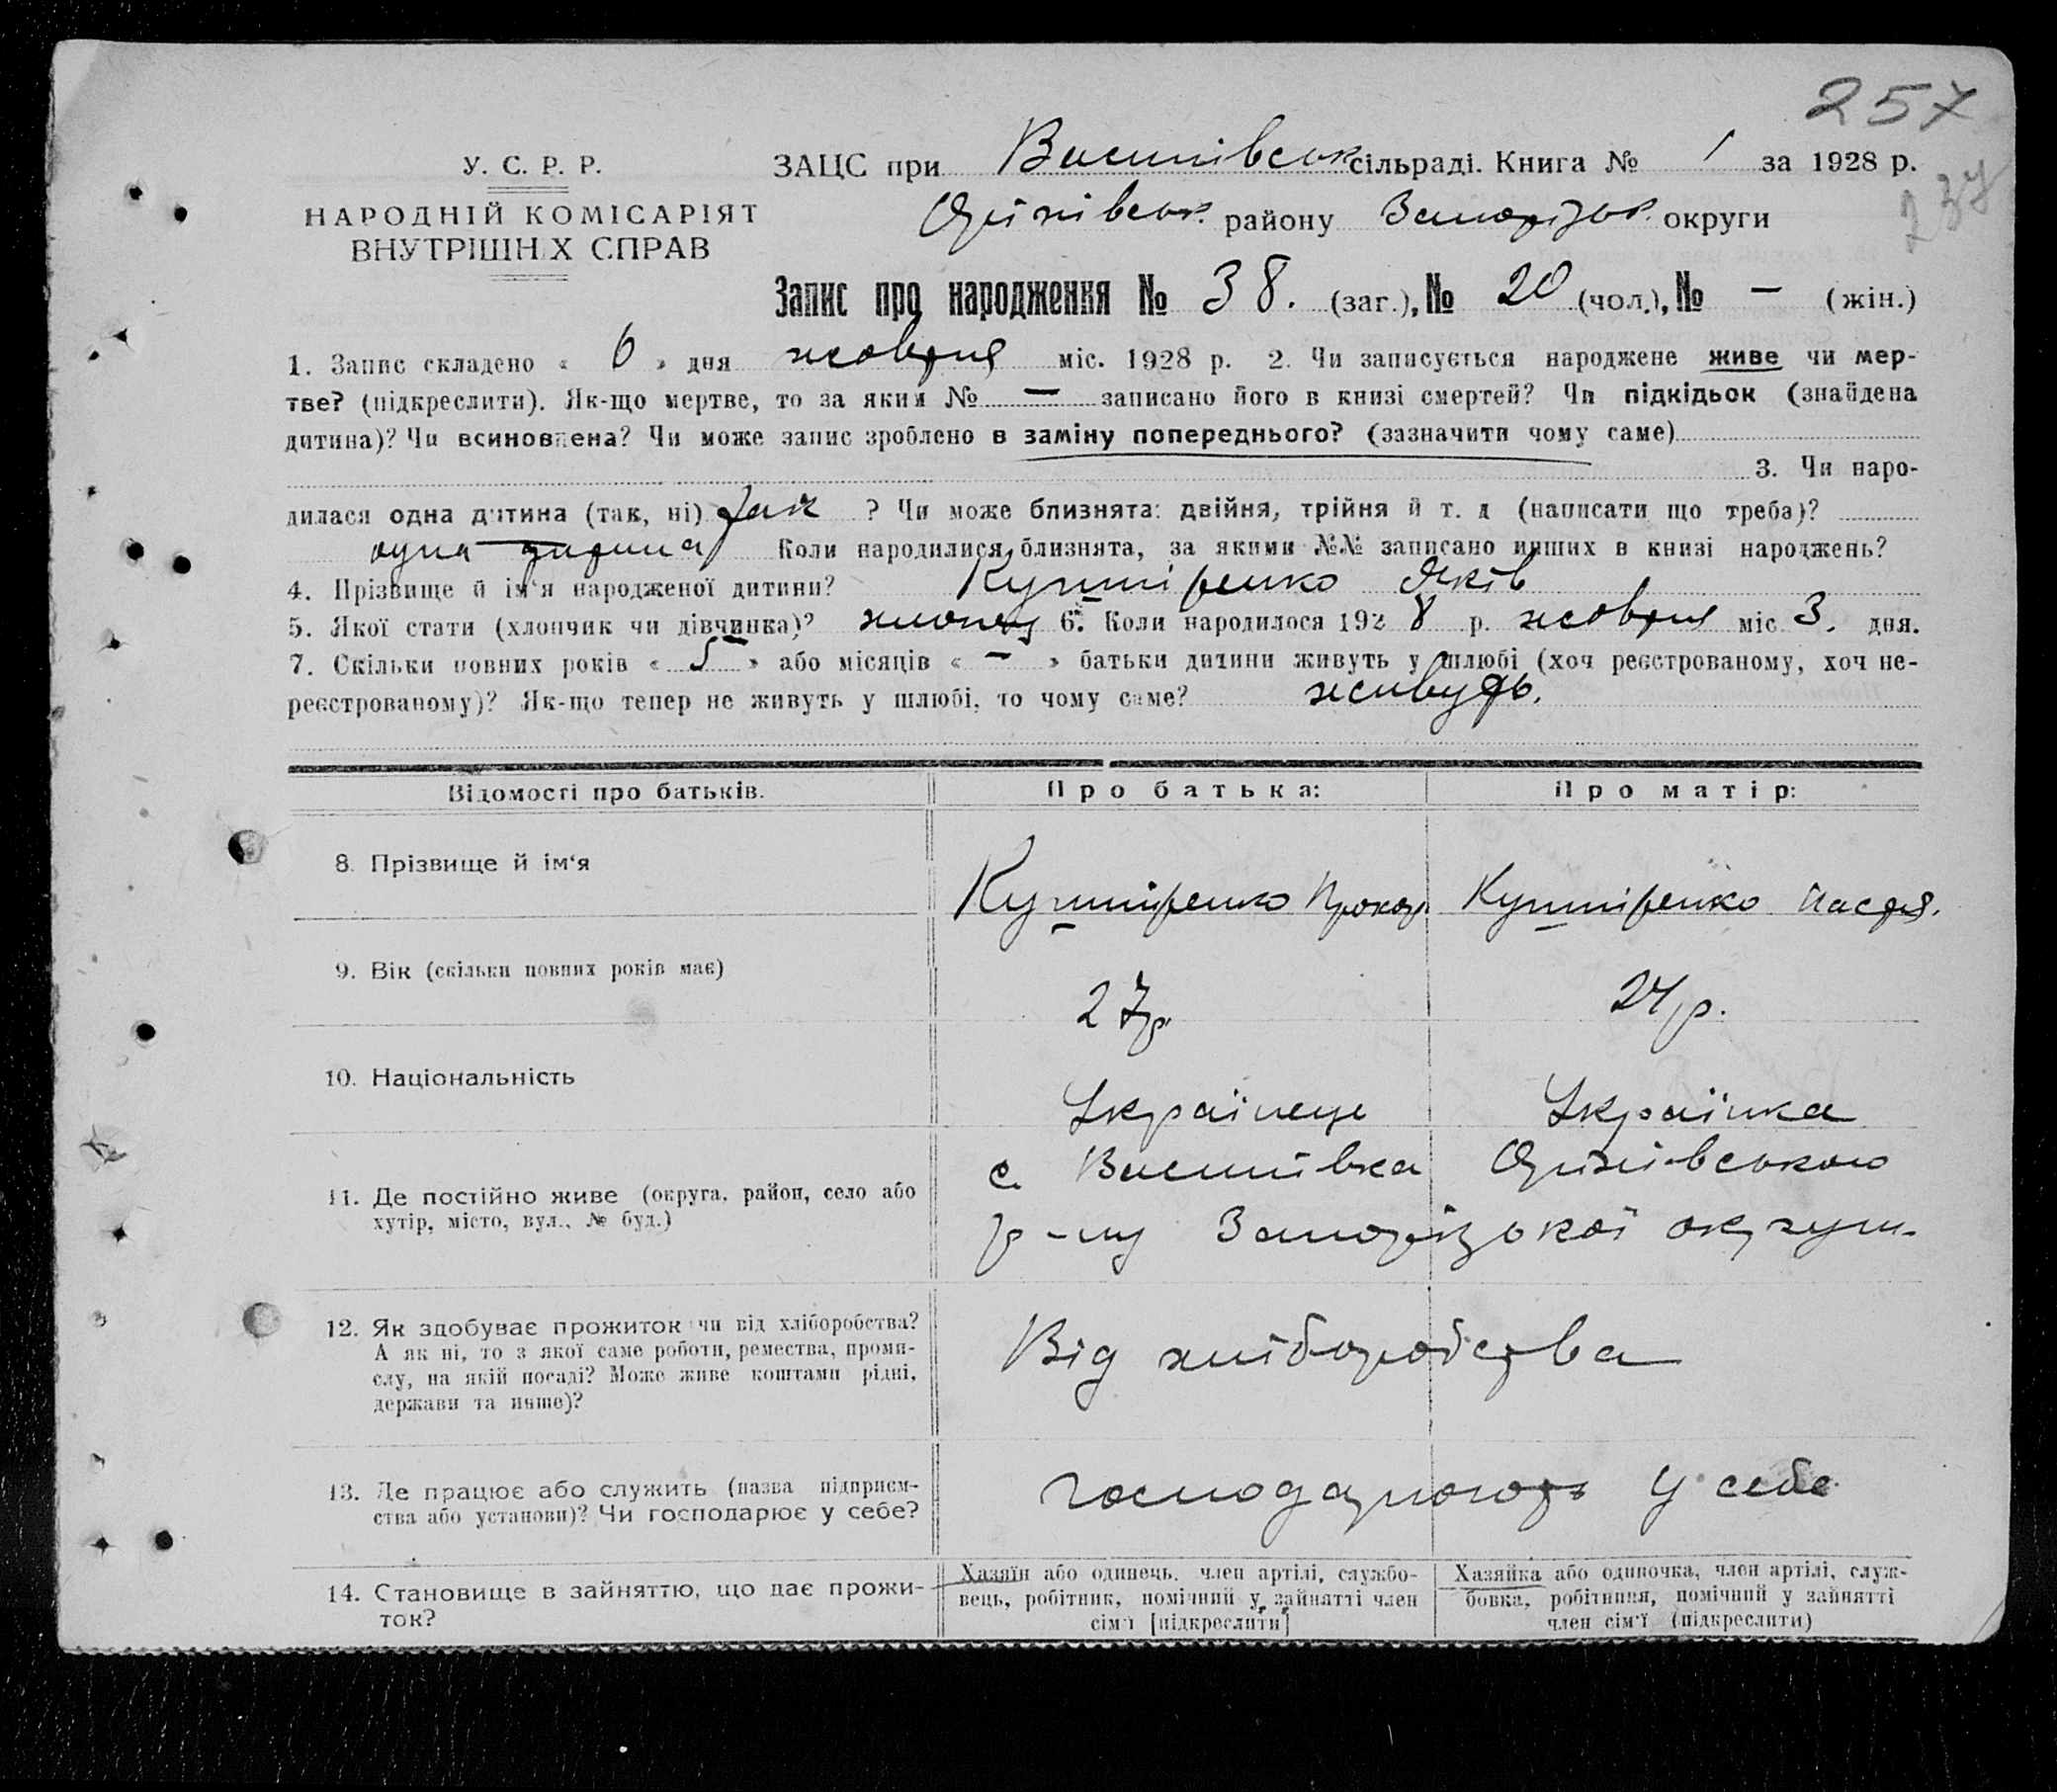 257
237
У. С. Р. Р.
НАРОДНІЙ КОМІСАРІЯТ
ВНУТРІШНІХ СПРАВ
ЗАЦС при сільраді. Книга № 1 за 1928 р.
Оріхівськ. району Запорізьк. округи
Запис про народження № 38. (заг.), № 20 (чол.), № — (жін.)
1. Запис складено « 6 » дня жовтня міс. 1928 р. 2. Чи записується народжене живе чи мер-
тве? (підкреслити). Як-що мертве, то за яким № — записано його в книзі смертей? Чи підкідьок (знайдена
дитина)? Чи всиновлена? Чи може запис зроблено в заміну попереднього? (зазначити чому саме)
3. Чи наро-
дилася одна дитина (так, ні) Так ? Чи може близнята: двійня, трійня й т. д (написати що треба)?
одна дитина Коли народилися близнята, за якими №№ записано инших в книзі народжень?
4. Прізвище й ім'я народженої дитини? Кушніренко Яків
5. Якої стати (хлопчик чи дівчинка)? хлопец 6. Коли народилося 1928 р. жовтня міс 3. дня.
7. Скільки повних років « 5 » або місяців « — » батьки дитини живуть у шлюбі (хоч реєстрованому, хоч не-
реєстрованому)? Як-що тепер не живуть у шлюбі, то чому саме? живуть.
Відомості про батьків. Про батька: Про матір:
8. Прізвище й ім'я Кушніренко Прокоп Кушніренко Настя.
9. Вік (скільки повних років має) 27р. 24р.
10. Національність Українець Українка
11. Де постійно живе (округа, район, село або
хутір, місто, вул., № буд.)
с. Оріхівського
р-ну Запорізької округи.
12. Як здобуває прожиток чи від хліборобства?
А як ні, то з якої саме роботи, ремества, проми-
слу, на якій посаді? Може живе коштами рідні,
держави та инше)?
Від хліборобства
13. Де працює або служить (назва підприєм-
ства або установи)? Чи господарює у себе?
господарюють у себе
14. Становище в зайняттю, що дає прожи-
ток?
Хазяїн або одинець, член артілі, службо-
вець, робітник, помічний у зайнятті член
сім'ї [підкреслити]
Хазяйка або одиночка, член артілі, служ-
бовка, робітниця, помічний у зайнятті
член сім'ї (підкреслити)